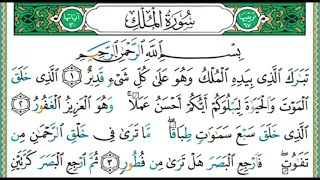 سُورَةُ الْمُلْكِ
بِسْمِ اللَّهِ الرَّحْمَٰنِ الرَّحِيمِ
تَبَارَكَ الَّذِي بِيَدِهِ الْمُلْكُ وَهُوَ عَلَىٰ كُلِّ شَيْءٍ قَدِيرٌ ۝١ الَّذِي خَلَقَ
الْمَوْتَ وَالْحَيَاةَ لِيَبْلُوَكُمْ أَيُّكُمْ أَحْسَنُ عَمَلًا ۚ وَهُوَ الْعَزِيزُ الْغَفُورُ ۝٢
الَّذِي خَلَقَ سَبْعَ سَمَاوَاتٍ طِبَاقًا ۖ مَا تَرَىٰ فِي خَلْقِ الرَّحْمَٰنِ مِنْ
تَفَاوُتٍ ۖ فَارْجِعِ الْبَصَرَ هَلْ تَرَىٰ مِنْ فُطُورٍ ۝٣ ثُمَّ ارْجِعِ الْبَصَرَ كَرَّتَيْنِ